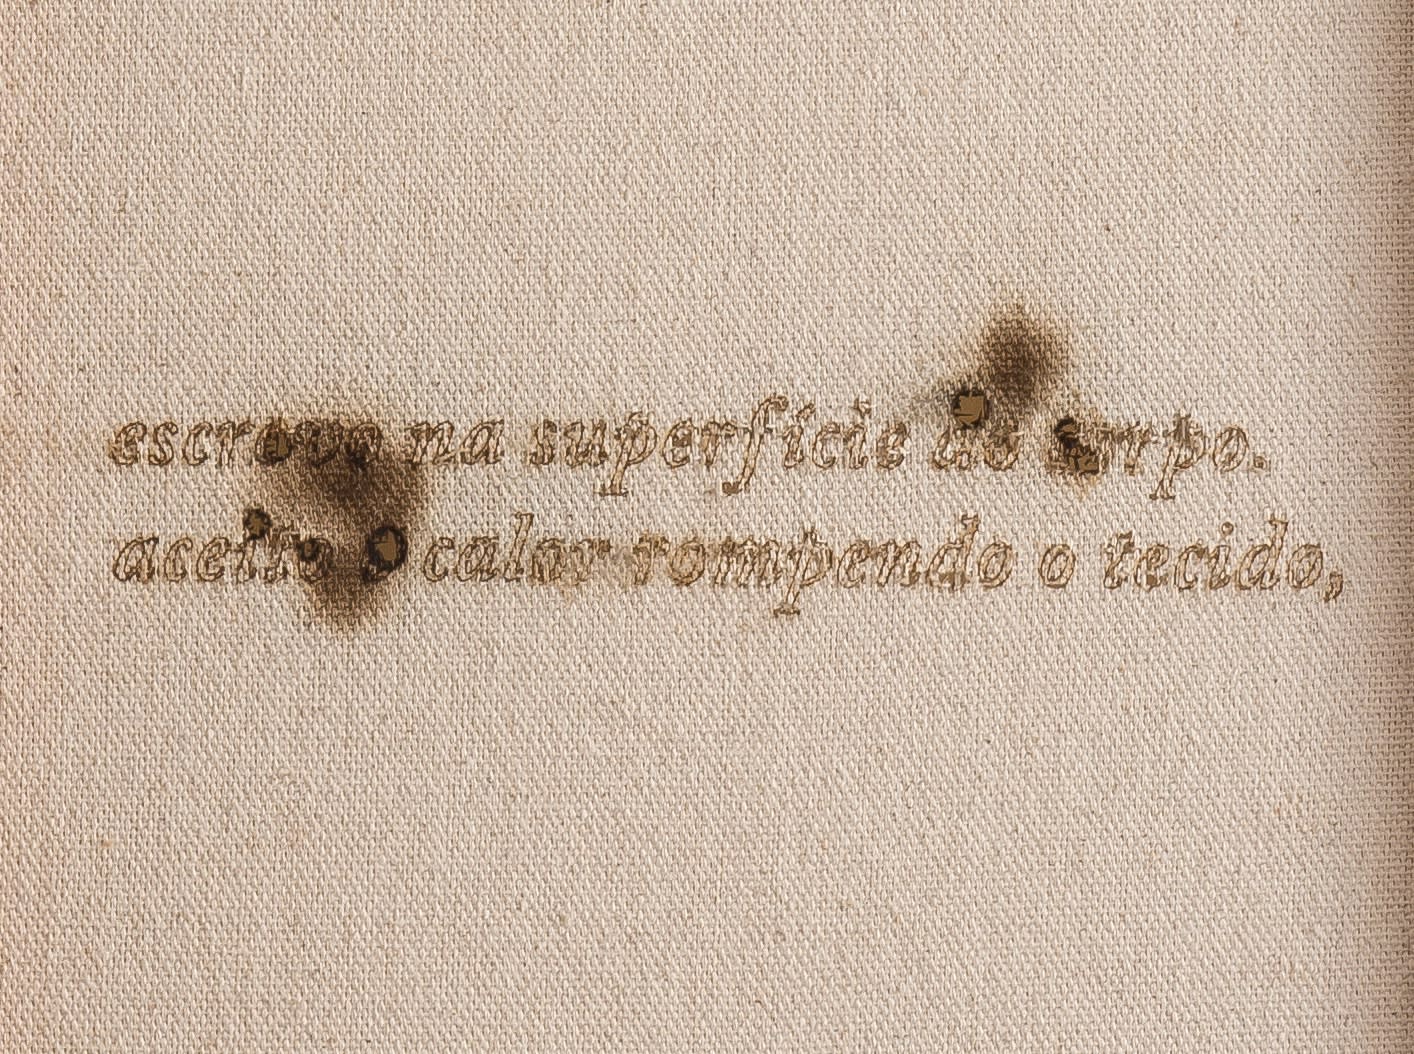 escrevo na superfície do corpo.
aceito o calor rompendo o tecido,